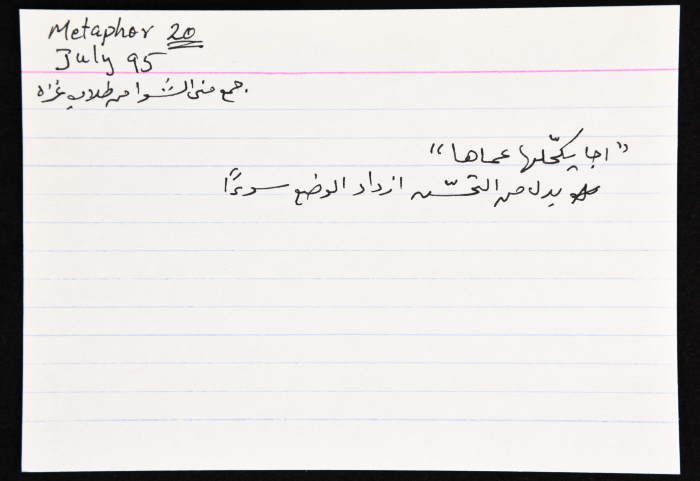 Metaphor 20
July 95
جمع منى الشوا من طلاب غزة.
"اجا يكحّلها عماها"
بدل من التحسّن ازداد الوضع سوءًا